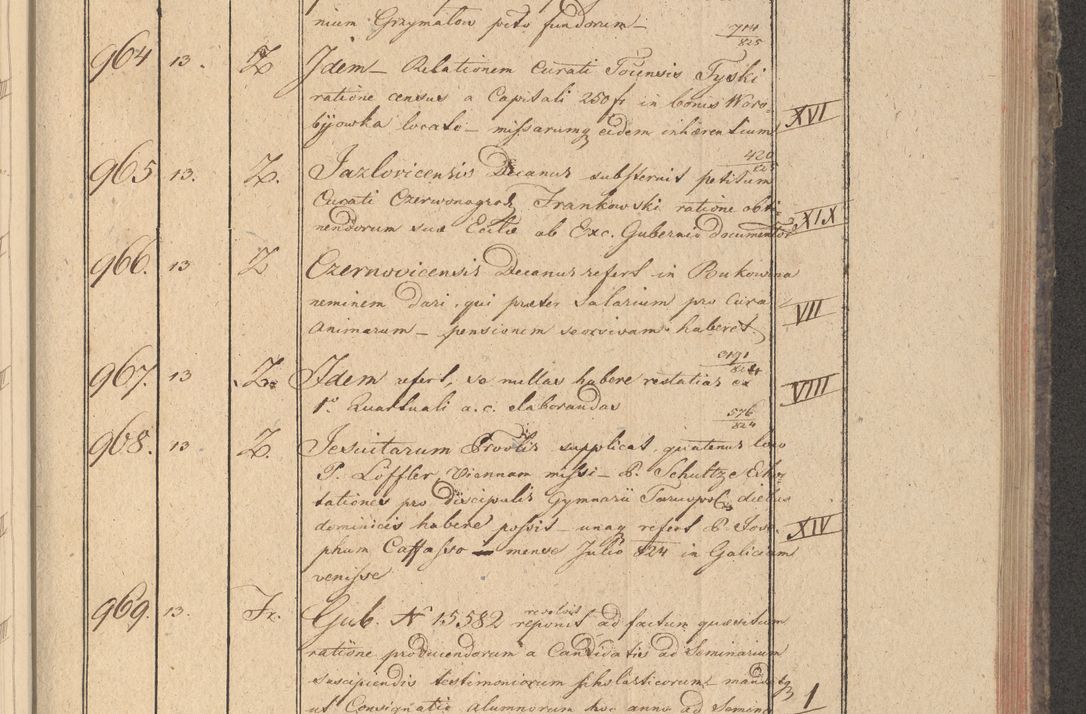 nium Grzymałow peto fundorum –
714/825
964 13. Z. Idem – Relationem Curati Touensis Tyski
ratione census a Capitali 250 fr in bonis Woro-
bijowka locato – missarumq eidem inhærentium XVI
420/825
965 13. Z. Jazlovicensis Decanus substernit petitum
Curati Czerwonogrod. Frankowski ratione obti-
nendorum suæ Ecclæ ab Exc. Gubernio documentor XIX
966. 13 Z Czernovicensis Decanus refert in Bukowina
neminem dari, qui præter Salarium pro Cura
Animarum – pensionem seorsivam haberet VII
967. 13 Z. Idem refert, se nullas habere restatias ex
1º Quartuali a. c. elaborandas VIII
576/824
968. 13 Z. Jesuitarum Provlis supplicat, quatenus loco
P. Löffler Viennam missi – P. Schultze Exhor-
tationes pro discipulis Gymnasii Tarnopol. diebus
dominicis habere possit – unaq refert P. Jose-
phum Caffasso – mense Julio 824 in Galiciam XIV
venisse
969. 13. Fr. Gub. Nº 15582 resolvit reponit ad factum quæsitum
ratione producendorum a Candidatis ad Seminarium
suscipiendis testimoniorum scholasticorum – mandatq
ut Consignatio alumnorum hoc anno ad Semina 1